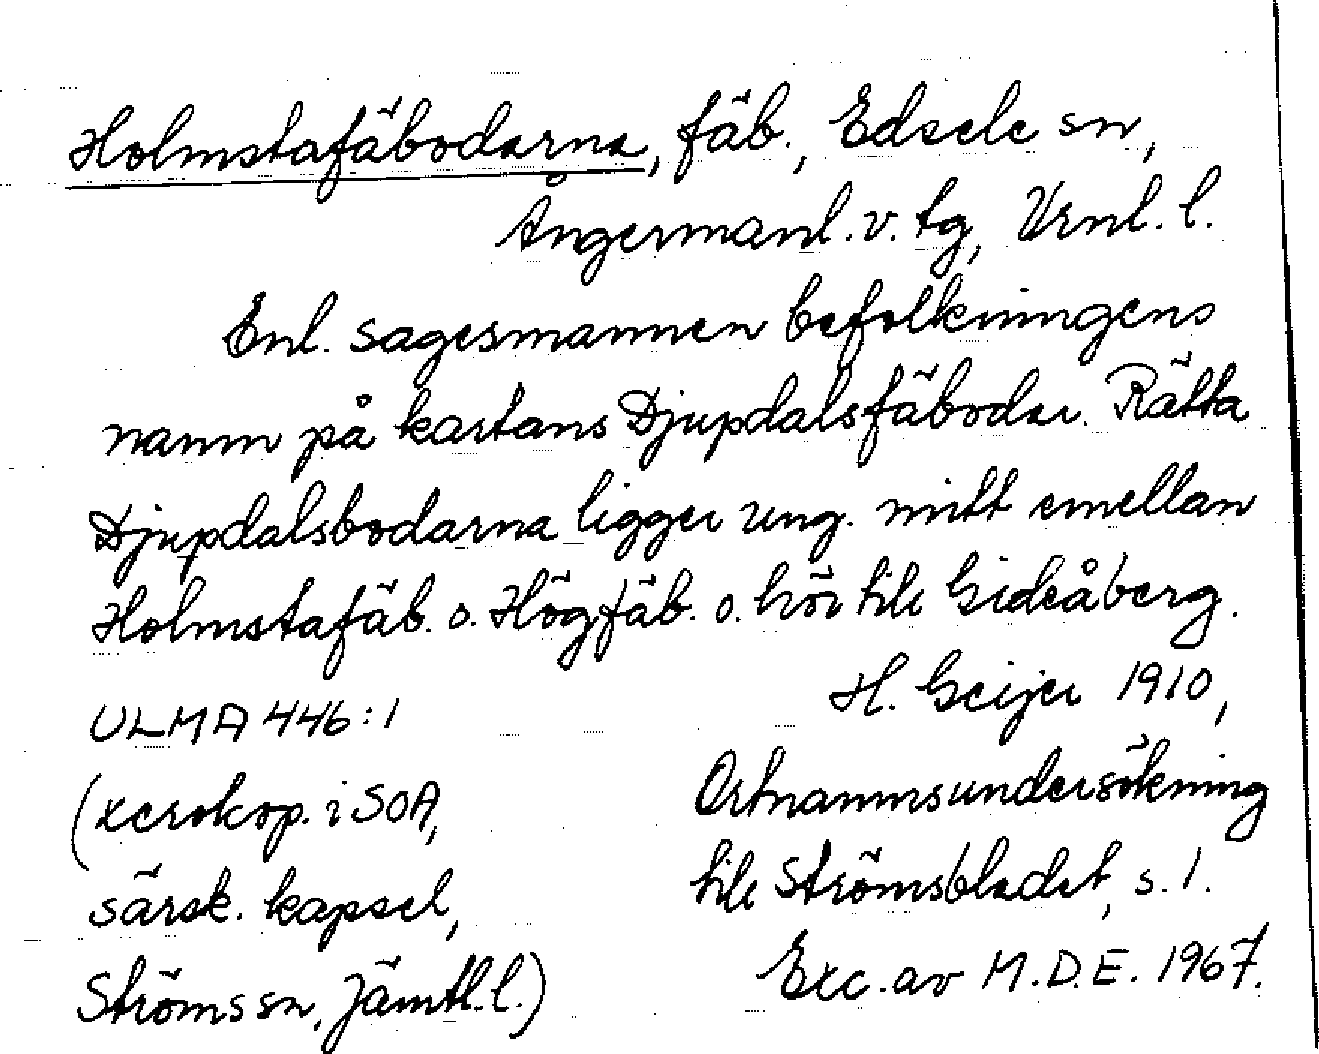 Holmstafäbodarna, fäb., Edsele sn,
Ångermanl. v. tg, Vrnl. l.
Enl. sagesmannen befolkningens
namn på kartans Djupdalsfäbodar. Rätta
Djupdalsbodarna ligger ung. mitt emellan
Holmstafäb. o. Högfäb. o. hör till Gideåberg.
H. Geijer 1910,
Ortnamnsundersökning
till Strömsbladet, s. 1.
Exc. av M.D.E. 1967.
ULMA 446:1
(xerokop. i SOA,
särsk. kapsel,
Ströms sn, Jämtl. l.)